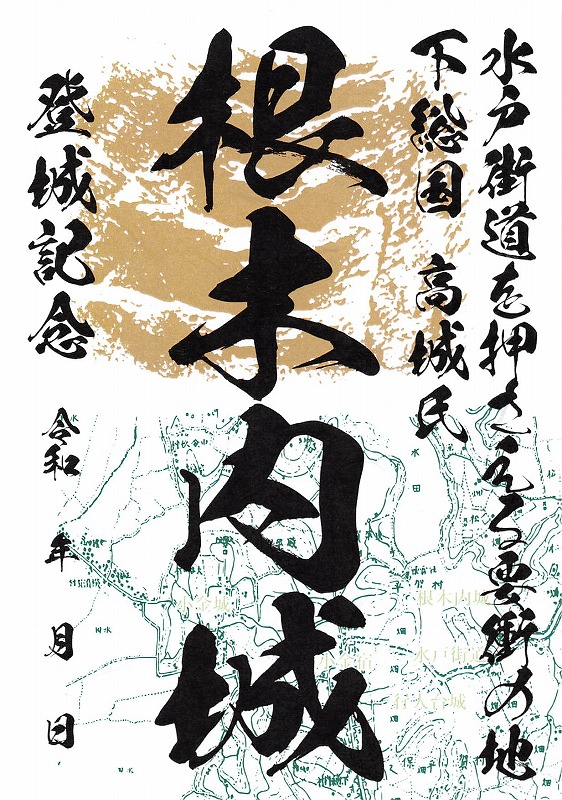 水戸街道を押さえる要衝の地
下総国 高城氏
根木内城
登城記念
令和 年 月 日
根木内城
水戸街道
行人台城
小金城
小金宿
水田